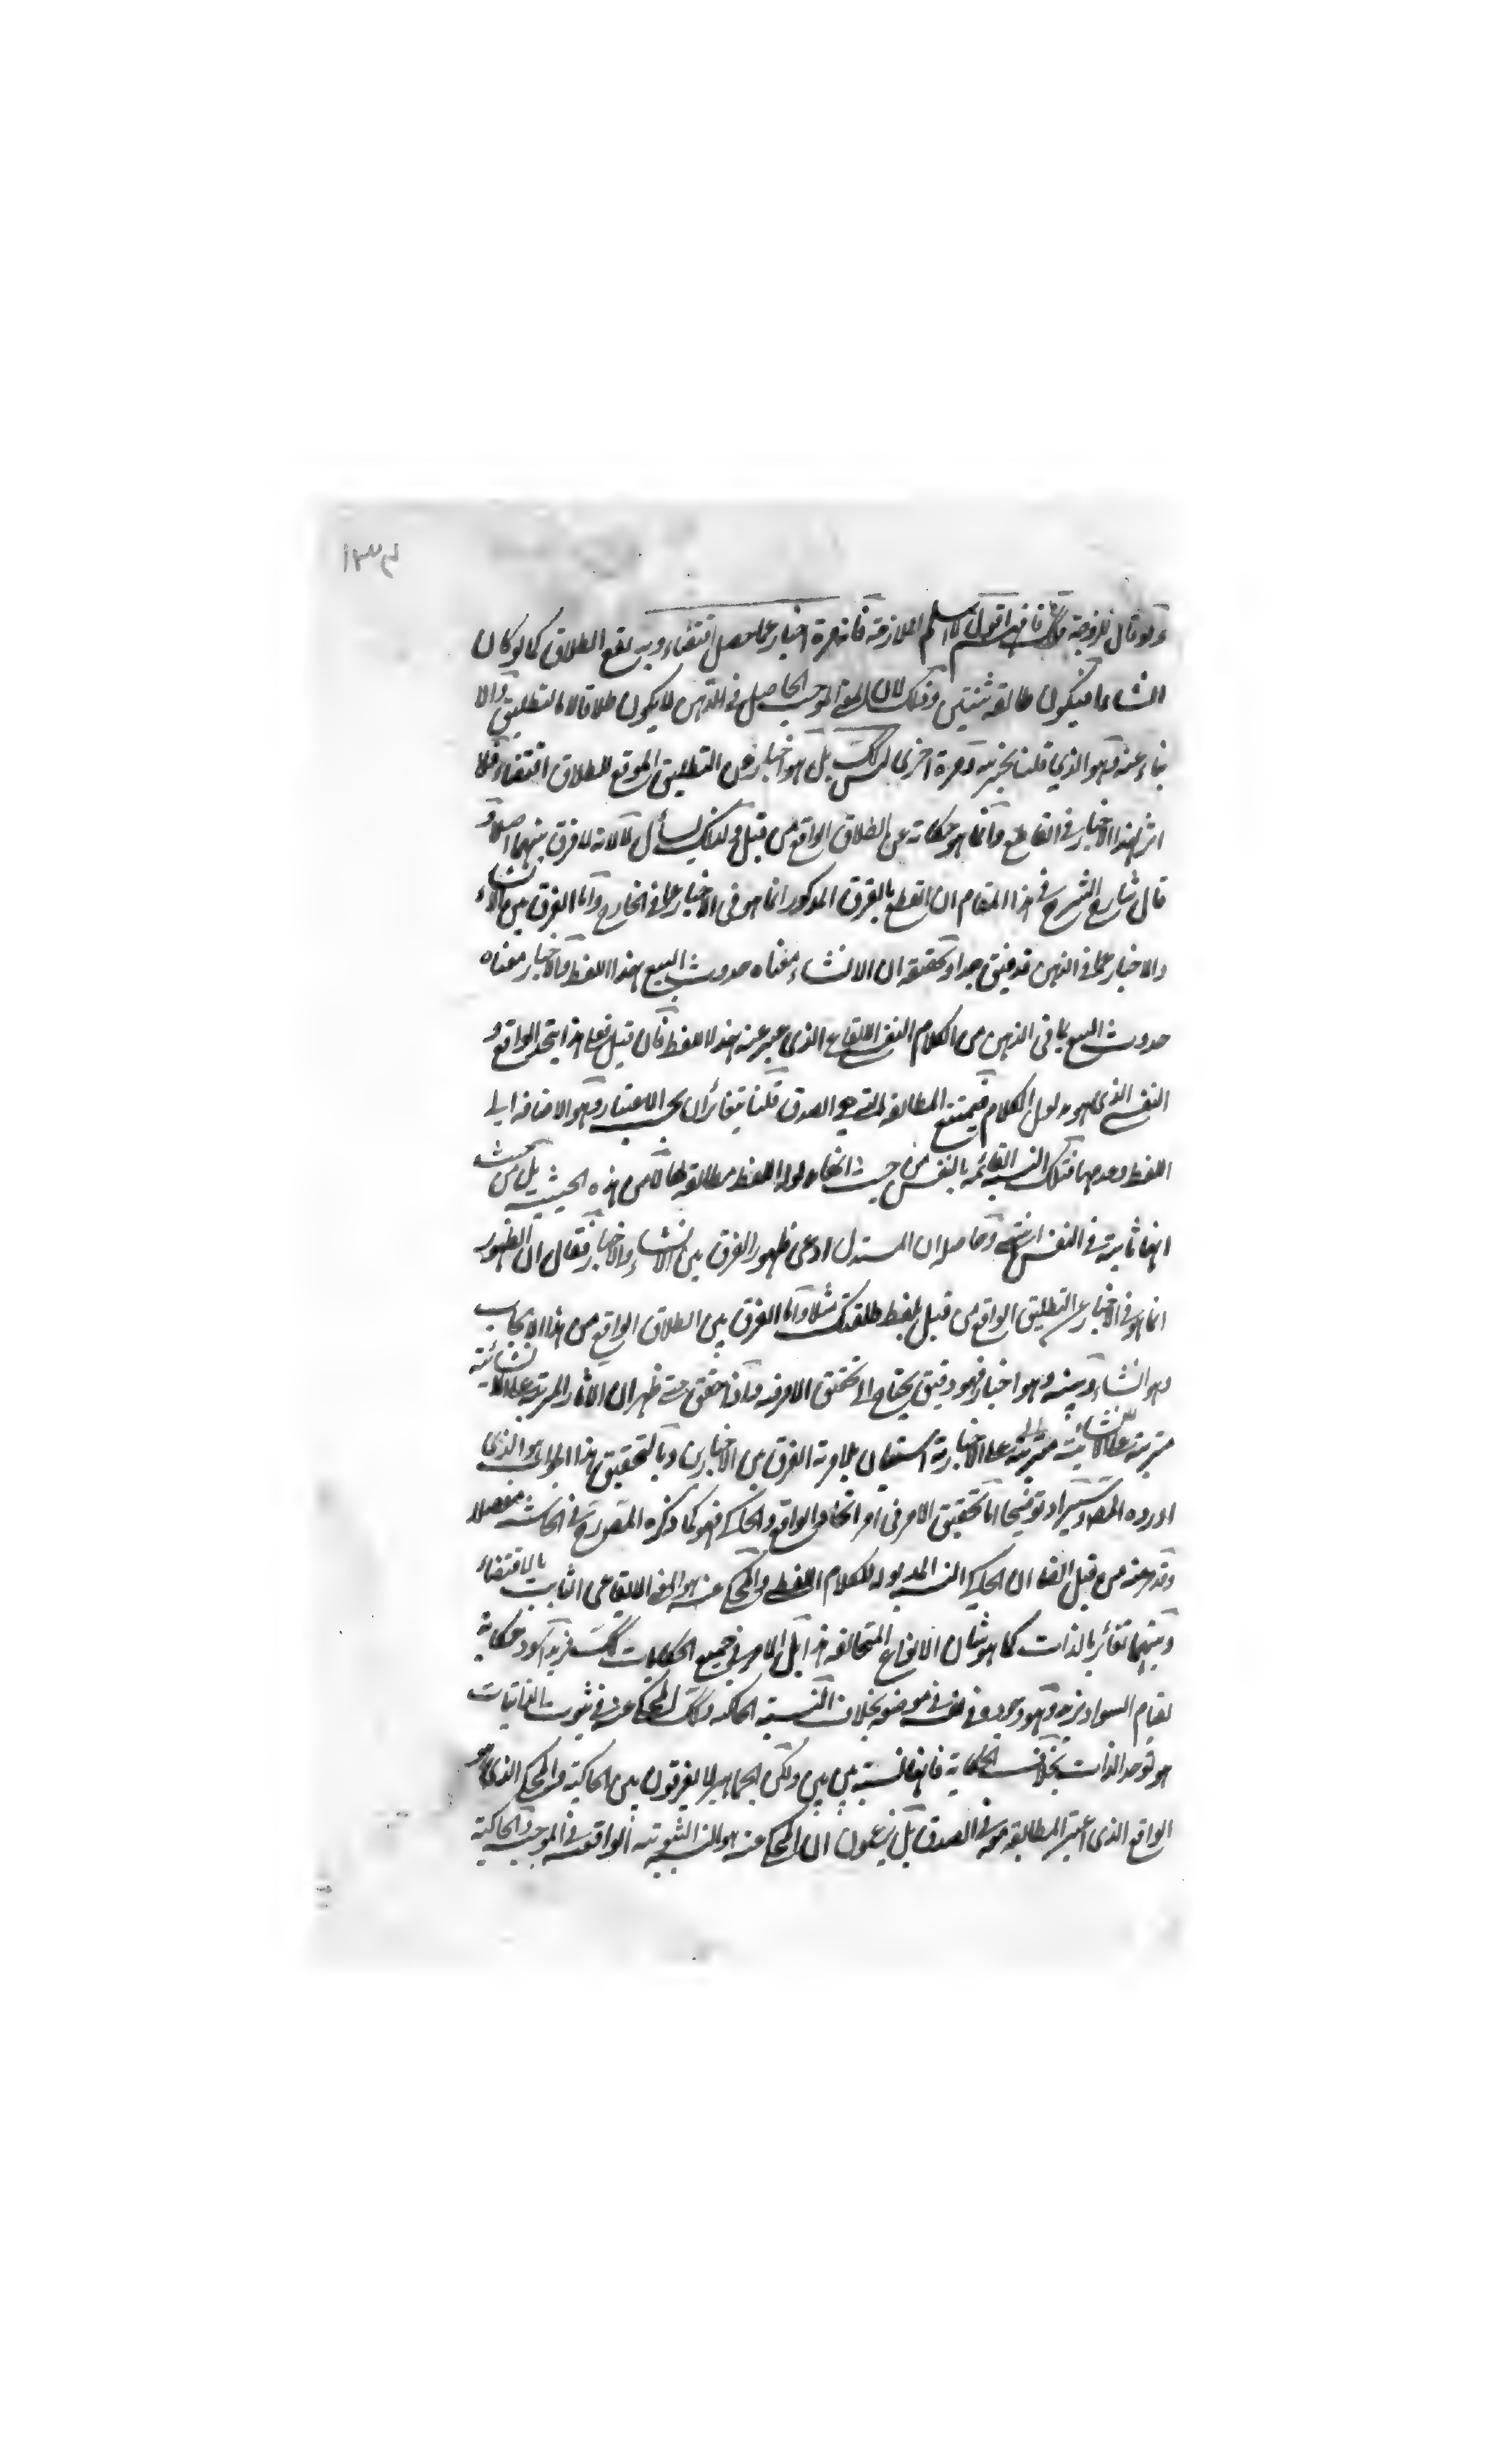 ولو قال للزوجة فافهم اقول لا نسلم الملازمة فانه مرة اخبار عما حصل اقتضاء وبه يقع الطلاق كما لو كان
انشاء فيكون طالقة ثنتين وذلك لان الموجب الحاصل في الذهن لا يكون طلاقا الا بالتطليق والا
بناء عنه وهو الذي قلنا بخبريته ومرة اخرى ليس كذلك بل هو اخبار عن التطليق الموقع للطلاق اقتضاء فلا
اثر لهذا الاخبار في القاطع وانما هو حكاية عن الطلاق الواقع من قبل ولذلك يسأل لا لانه لا فرق بينهما اصلا و
قال شارح الشرح في هذا المقام ان القطع بالفرق المذكور انما هو في الاخبار عما في الخارج واما الفرق بين الانشاء
والاخبار عما في الذهن فدقيق جدا وتحقيقه ان الانشاء معناه حدوث البيع بهذا اللفظ والاخبار معناه
حدوث البيع بما في الذهن من الكلام النفسي الايقاع الذي عبر عنه بهذا اللفظ فان قيل فعلى هذا يتحد الواقع و
النفسي الذي هو مدلول الكلام فيمتنع المطابقة التي هي الصدق قلنا يتغائران بحسب الاعتبار وهو الاضافة الى
اللفظ وعدمها فتلك النسبة القائمة بالنفس من حيث انها مدلول اللفظ مطابقة لها لا من هذه الحيثية بل من حيث
انها ثابتة في النفس انتهى وحاصله ان المستدل ادعى ظهور الفرق بين الانشاء والاخبار فقال ان الظهور
انما هو في الاخبار عن التطليق الواقع من قبل بلفظ طلقتك مثلا واما الفرق بين الطلاق الواقع من هذا الايجاب
وهو انشاء وبينه وهو اخبار فهو دقيق يحتاج الى تحقيق الامر فيه واذا حقق حتى ظهر ان الاثار المترتبة على الانشائية
مترتبة على الانشائية مترتبة على الاخبارية استعان بملاومة الفرق بين الاخبارين وبالتحقيق هذا الجواب هو الذي
اورده المصنف توضيحا اما تحقيق الامر في امر اتحاد الواقع والحاكي فهو كما ذكره المصنف رح في الحاشية مفصلا
وقد مر منه من قبل ايضا ان الحاكي النسبة المدلولة للكلام اللفظي والمحكي عنه هو المعنى الايقاعي الثابت بالاقتضاء
وبينهما تغائر بالذات كما هو شان الانواع المتخالفة هذا بل الامر في جميع الحكايات كذلك زيد اسود حكاية
لقيام السواد بزيد وهو وجوده في نفسه في موضوعه بخلاف النسبة الحاكية وكذلك المحكي عنه في ثبوت الذاتيات
هو توحد الذات بخلاف الحكاية فانها نسبة بين بين ولكن الجماهير لا يفرقون بين الحاكية والمحكي الذي هو
الواقع الذي اعتبر المطابقة معه في الصدق بل يزعمون ان المحكي عنه هو النسبة الثبوتية الواقعة في الموجبة والحاكية